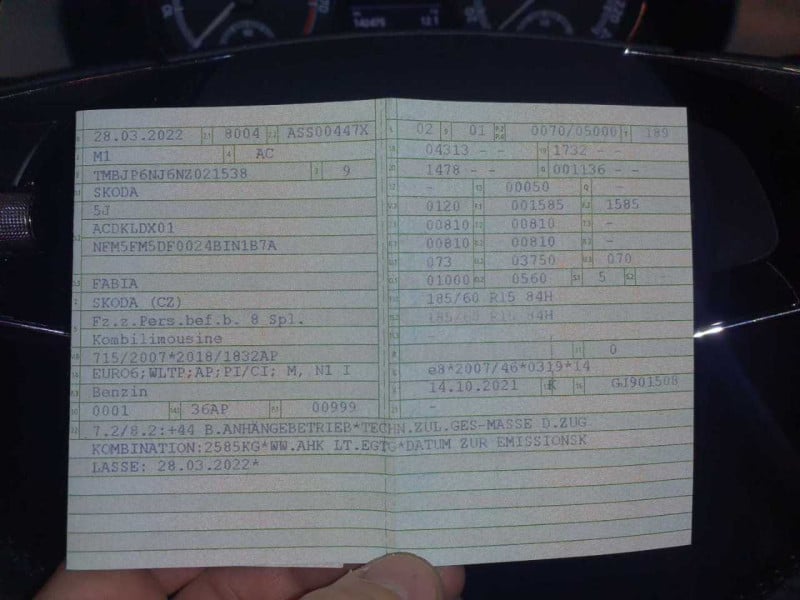 28.03.2022 2.1 8004 2.2 ASS00447X
M1 4 AC
TMBJP6NJ6NZ021538 3 9
SKODA
5J
ACDKLDX01
NFM5FM5DF0024BIN1B7A
FABIA
SKODA (CZ)
Fz.z.Pers.bef.b. 8 Spl.
Kombilimousine
715/2007*2018/1832AP
EURO6;WLTP;AP;PI/CI; M, N1 I
Benzin
0001 36AP 00999
7.2/8.2:+44 B.ANHÄNGEBETRIEB*TECHN.ZUL.GES-MASSE D.ZUG
KOMBINATION:2585KG*WW.AHK LT.EGTG*DATUM ZUR EMISSIONSK
LASSE: 28.03.2022*
02 9 01 P.2 P.4 0070/05000 T 189
04313 - - 19 1732 - -
1478 - - G 001136 - -
- 13 00050 Q -
0120 001585 1585
00810 00810 -
00810 00810 -
073 03750 070
01000 0560 S.1 5 S.2 -
185/60 R15 84H
185/60 R15 84H
-
11 0
e8*2007/46*0319*14
14.10.2021 K 16 GJ901508
-